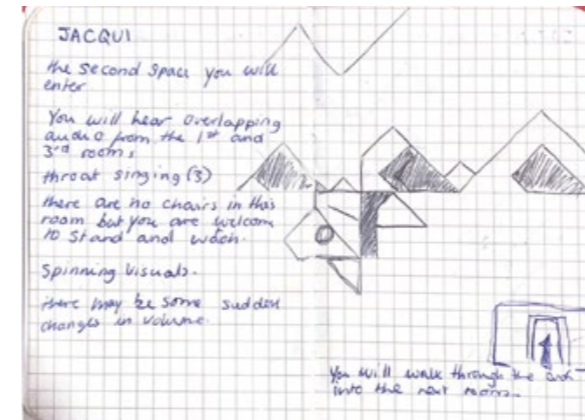 JACQUI
the second space you will
enter
You will hear overlapping
audio from the 1st and
3rd rooms
throat singing (3)
there are no chairs in this
room but you are welcome
to stand and watch.
Spinning Visuals.
there may be some sudden
changes in volume.
You will walk through the arch
into the next room.